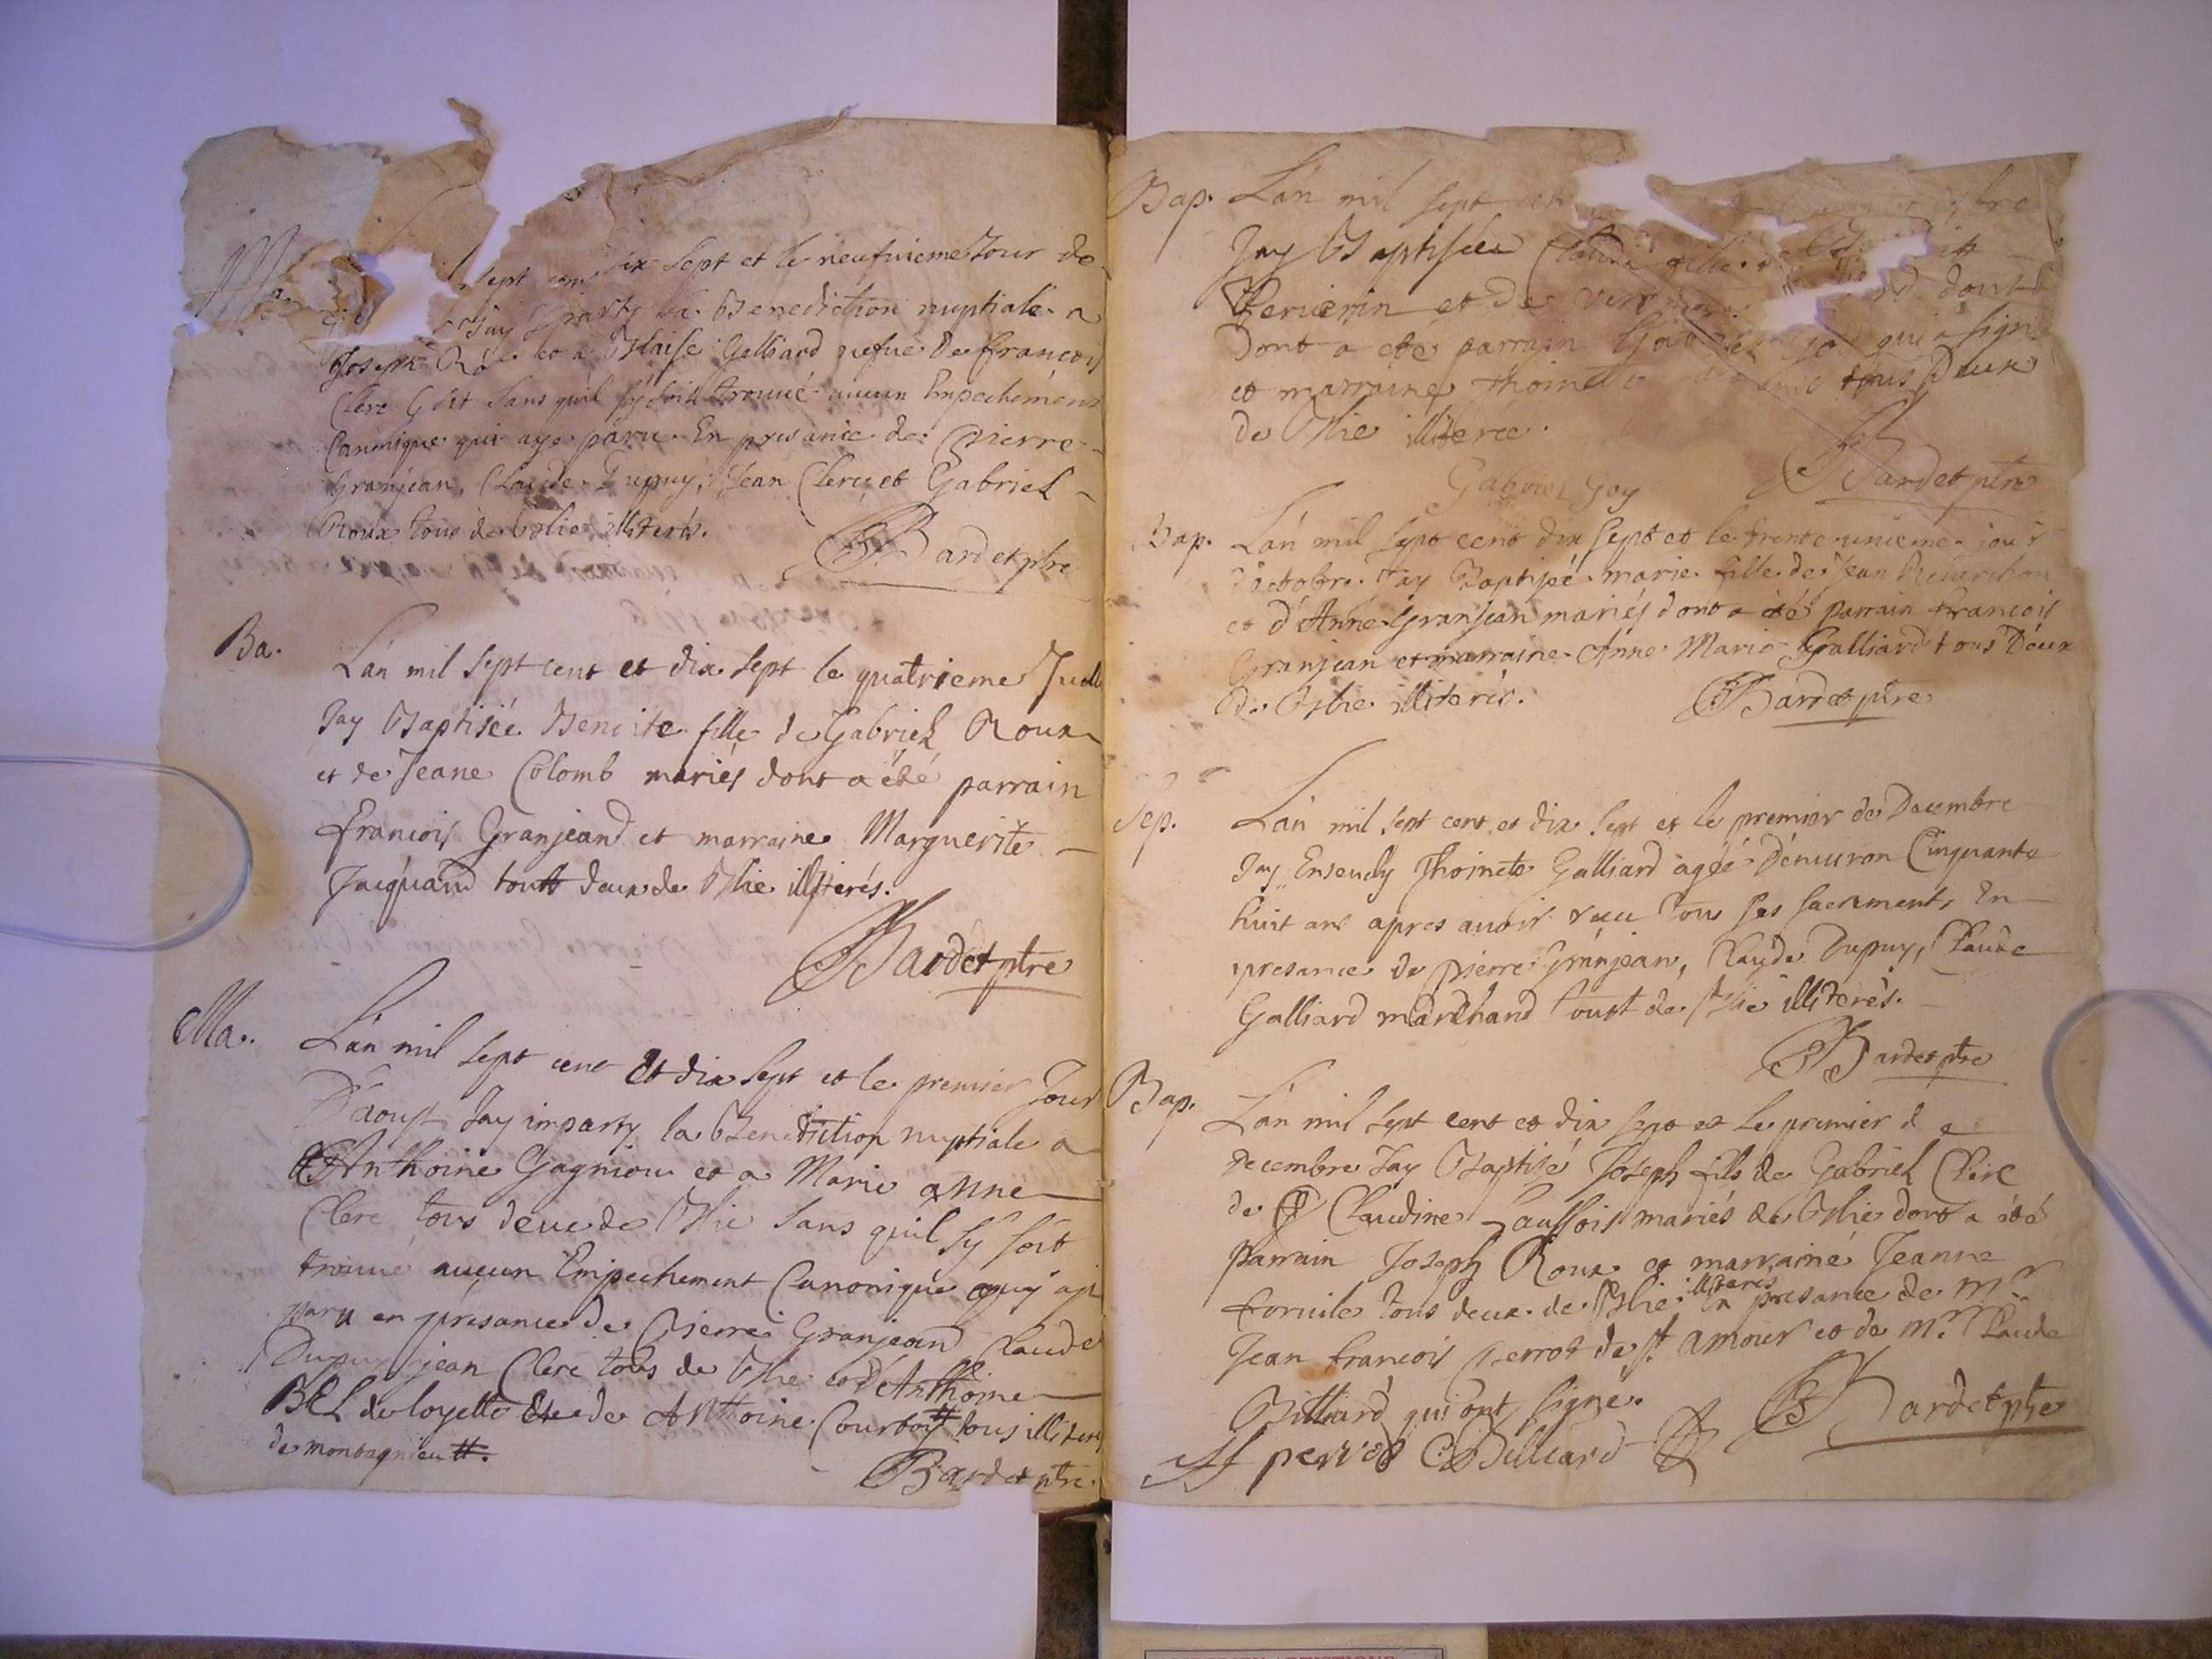 sept cens dix sept et le neufvieme Jour de
Jay imparty la Benediction nuptiale a
Joseph et a Blaise Galliard vefue de françois
Clerc sans quil sy soit trouué aucun Empechement
Canonique qui aye paru En presance de Pierre
Granjean, Claude Dupuy, Jean Clerc et Gabriel
Roux tous de Blie illiterés.
Bardet ptre
Ba.
L'an mil sept cent et dix sept le quatrieme Juill
Jay Baptisée Benoite fille de Gabriel Roux
et de Jeane Colomb mariés dont a été parrain
francois Granjeand et marraine Marguerite
Jacquand toutt deux de Blie illiterés.
Bardet ptre
Ma.
L'an mil sept cent et dix sept et le premier Jour
D'aoust Jay imparty la Benediction nuptiale a
Anthoine Gagniou et a Marie anne
Clerc tous deux de Blie sans quil sy soit
trouué aucun Empechement Canonique quy aye
paru en presance de Pierre Granjeand Claude
Dupuy jean Clerc tous de Blie et d'Anthoine
BEL de loyette et de Anthoine Courtois tous illiterés
de montagnieu tt.
Bardet ptre.
Bap. L'an mil sept cen
Jay Baptisée Claudi fille de
et de
Dont a été parrain Gabriel Goy qui a signé
et marraine thoinette tous Deux
de Blie illiterée.
Gabriel goy
Bardet ptre
Bap. L'an mil sept cent dix sept et le trente unieme jour
d'octobre. Jay Baptisée marie fille de Jean
et d'Anne Granjean mariés dont a été parrain francois
Granjean et marraine Anne Marie Galliard tous Deux
de Blie illiterés.
Bardet ptre
Sep. L'an mil sept cent et dix sept et le premier de Decembre
Jay Enseuely Thoinete Galliard agée D'enuiron Cinquante
huit ans apres auoir receu tous ses sacrements En
presance de pierre Granjean, Claude Dupuy, Claude
Galliard marchand toust de Blie illiterés.
Bardet ptre
Bap. L'an mil sept cent et dix sept et le premier de
decembre Jay Baptisé Joseph fils de Gabriel Clerc
de Claudine Laussois mariés de Blie dont a été
parrain Joseph Roux et marrainé Jeanne
tous deux de Blie illiterés En presance de Mr
Jean francois perrot de st amour et de Mr Claude
Billiard qui ont signé.
Bardet ptre
Jf perrot Billiard